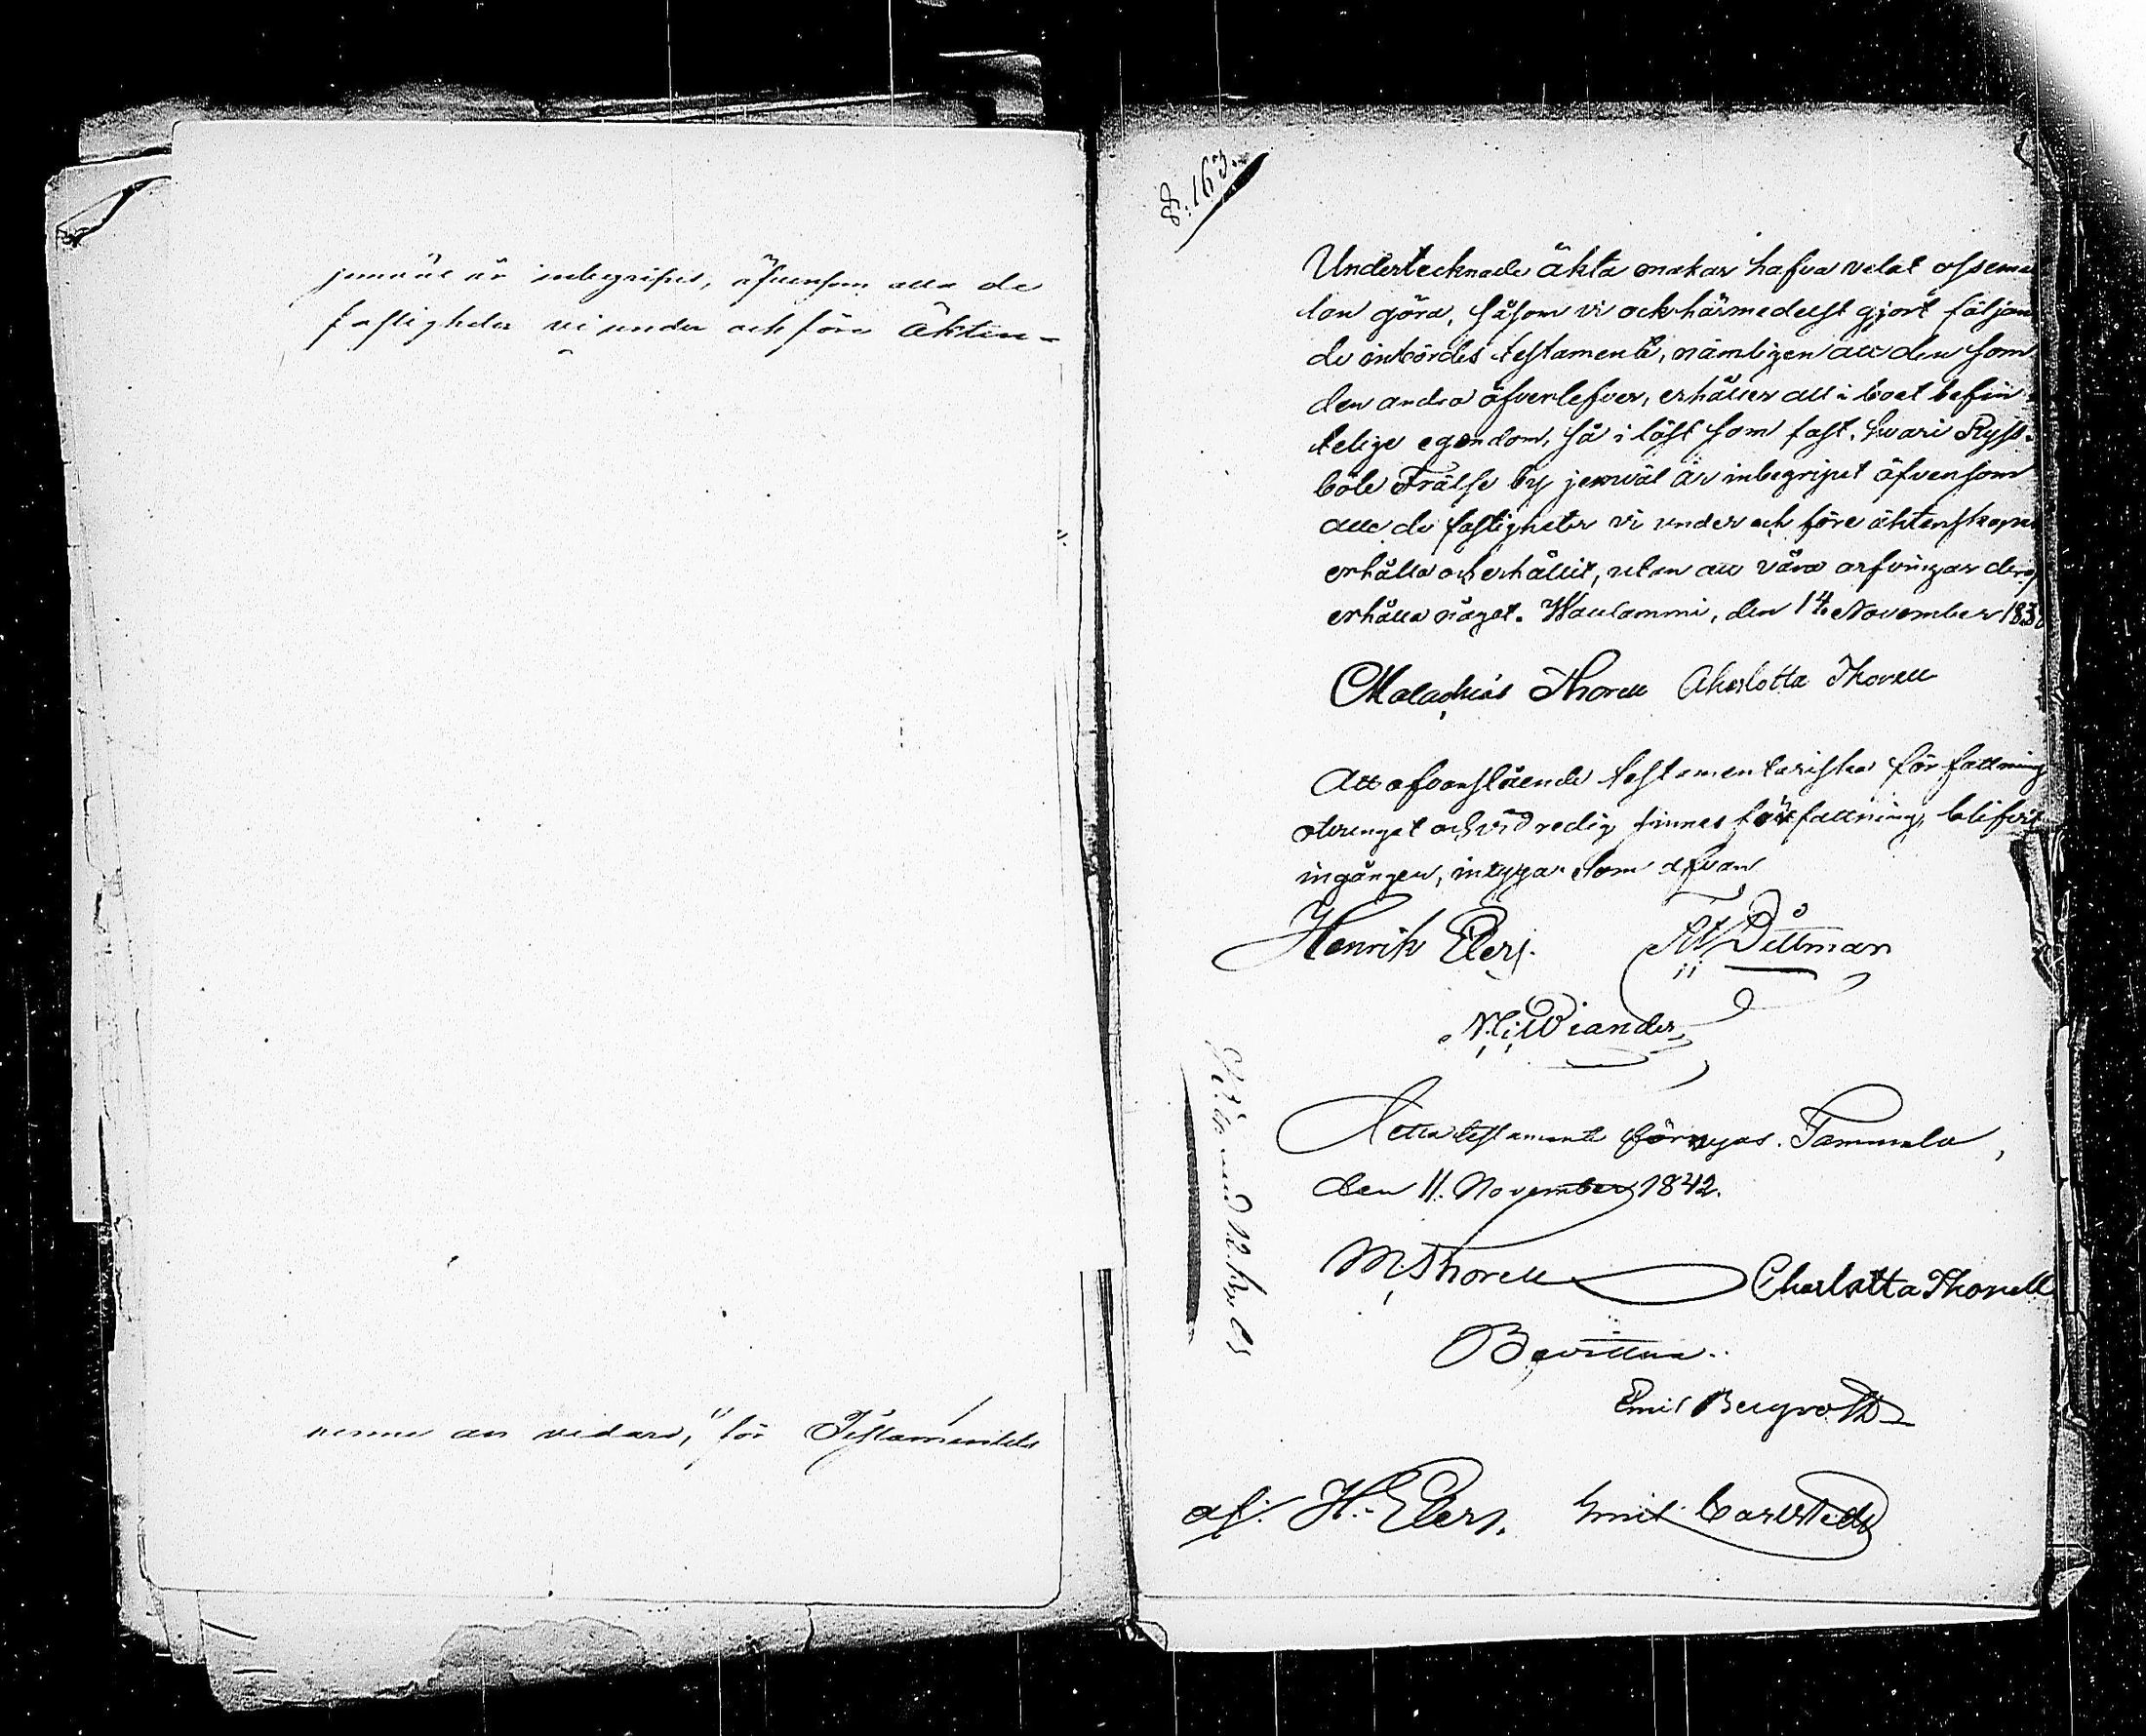 jemväl är inbegripet, äfvensom alla de
fastigheter vi under och före äkten-
nerne an vidare, för Testamentets
8:163.
Undertecknade äkta makar hafva velat ossemel
lan göra, såsom vi ock härmedelst gjort följan
de inbördes testamente, nämligen att den som
den andra öfverlefver, erhåller all i boet befin
telige egendom, så i löst som fast, hvari Ryss-
böle Frälse by jemväl är inbegripet äfvensom
alla de fastigheter vi under och före äktenskapet
erhålla och erhållit, utan att våra arfvingar deraf
erhålla något. Waulammi, den 14 November 183
Malachias Thorell Charlotta Thorell
Att ofvanstående testamentariska författning
otvunget och vid redig sinnes författning, blifvit
ingången, intyga som ofvan
Henrik Elers. Dittman
Wiander
Detta testamente förnyas. Tammela,
den 11. November 1842.
M Thorell Charlotta Thorell
Bevittna:
Emil Bergroth
af. H. Elers. Emil Carlstedt